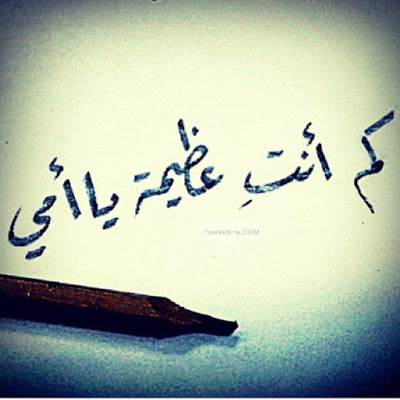 كم أنتِ عظيمة يا أمي
Tawaani-w.COM